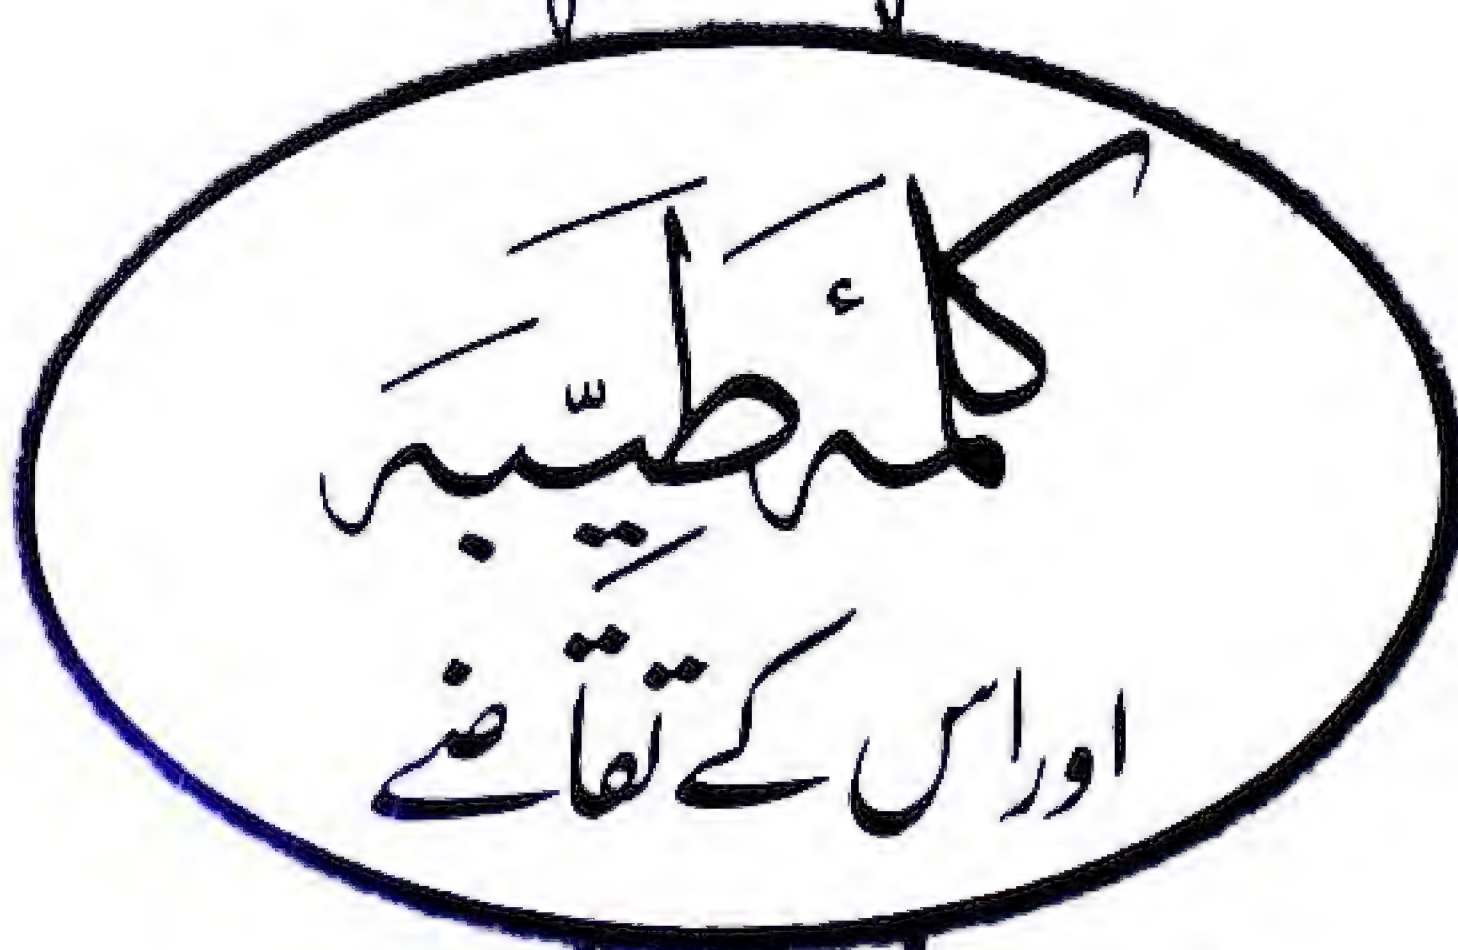 کلمۂ طَیّبَہ
اور اس کے تقاضے